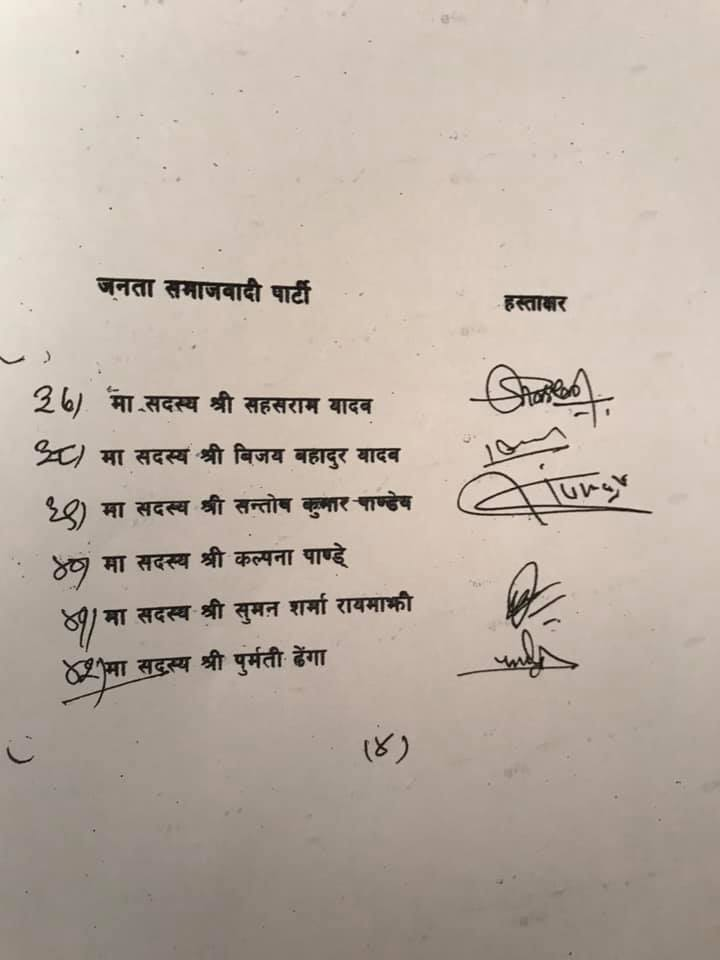 जनता समाजवादी पार्टी हस्ताक्षर
३७) मा सदस्य श्री सहसराम यादव
३८) मा सदस्य श्री बिजय बहादुर यादव
३९) मा सदस्य श्री सन्तोष कुमार पाण्डेय
४०) मा सदस्य श्री कल्पना पाण्डे
४१) मा सदस्य श्री सुमन शर्मा रायमाझी
४२) मा सदस्य श्री पुर्मती ढेंगा
(४)